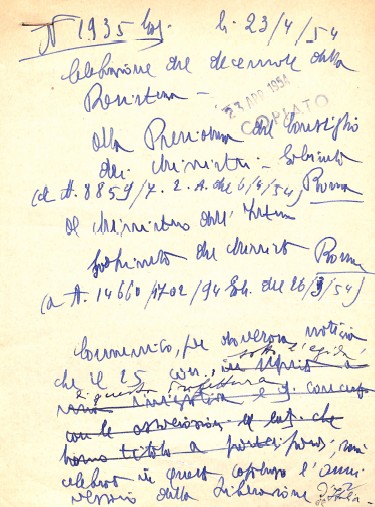 N 1935 Gab. li 23/4/54
Celebrazione del decennale della
Resistenza -
23 APR 1954
COPIATO
Alla Presidenza del Consiglio
dei Ministri - Gabinetto
(a n. 8859/7.2.A. del 6/4/54) Roma
Al Ministero dell'Interno
Gabinetto del Ministro Roma
(a n. 14660/ /94 Gab. del 26/3/54)
Comunico, per doverosa notizia
sotto l'egida
che il 25 corr., in
di questa Prefettura
iniziativa e
con le associazioni
hanno titolo a partecipare, sarà
celebrato in questo capoluogo l'anni
versario della Liberazione d'Italia